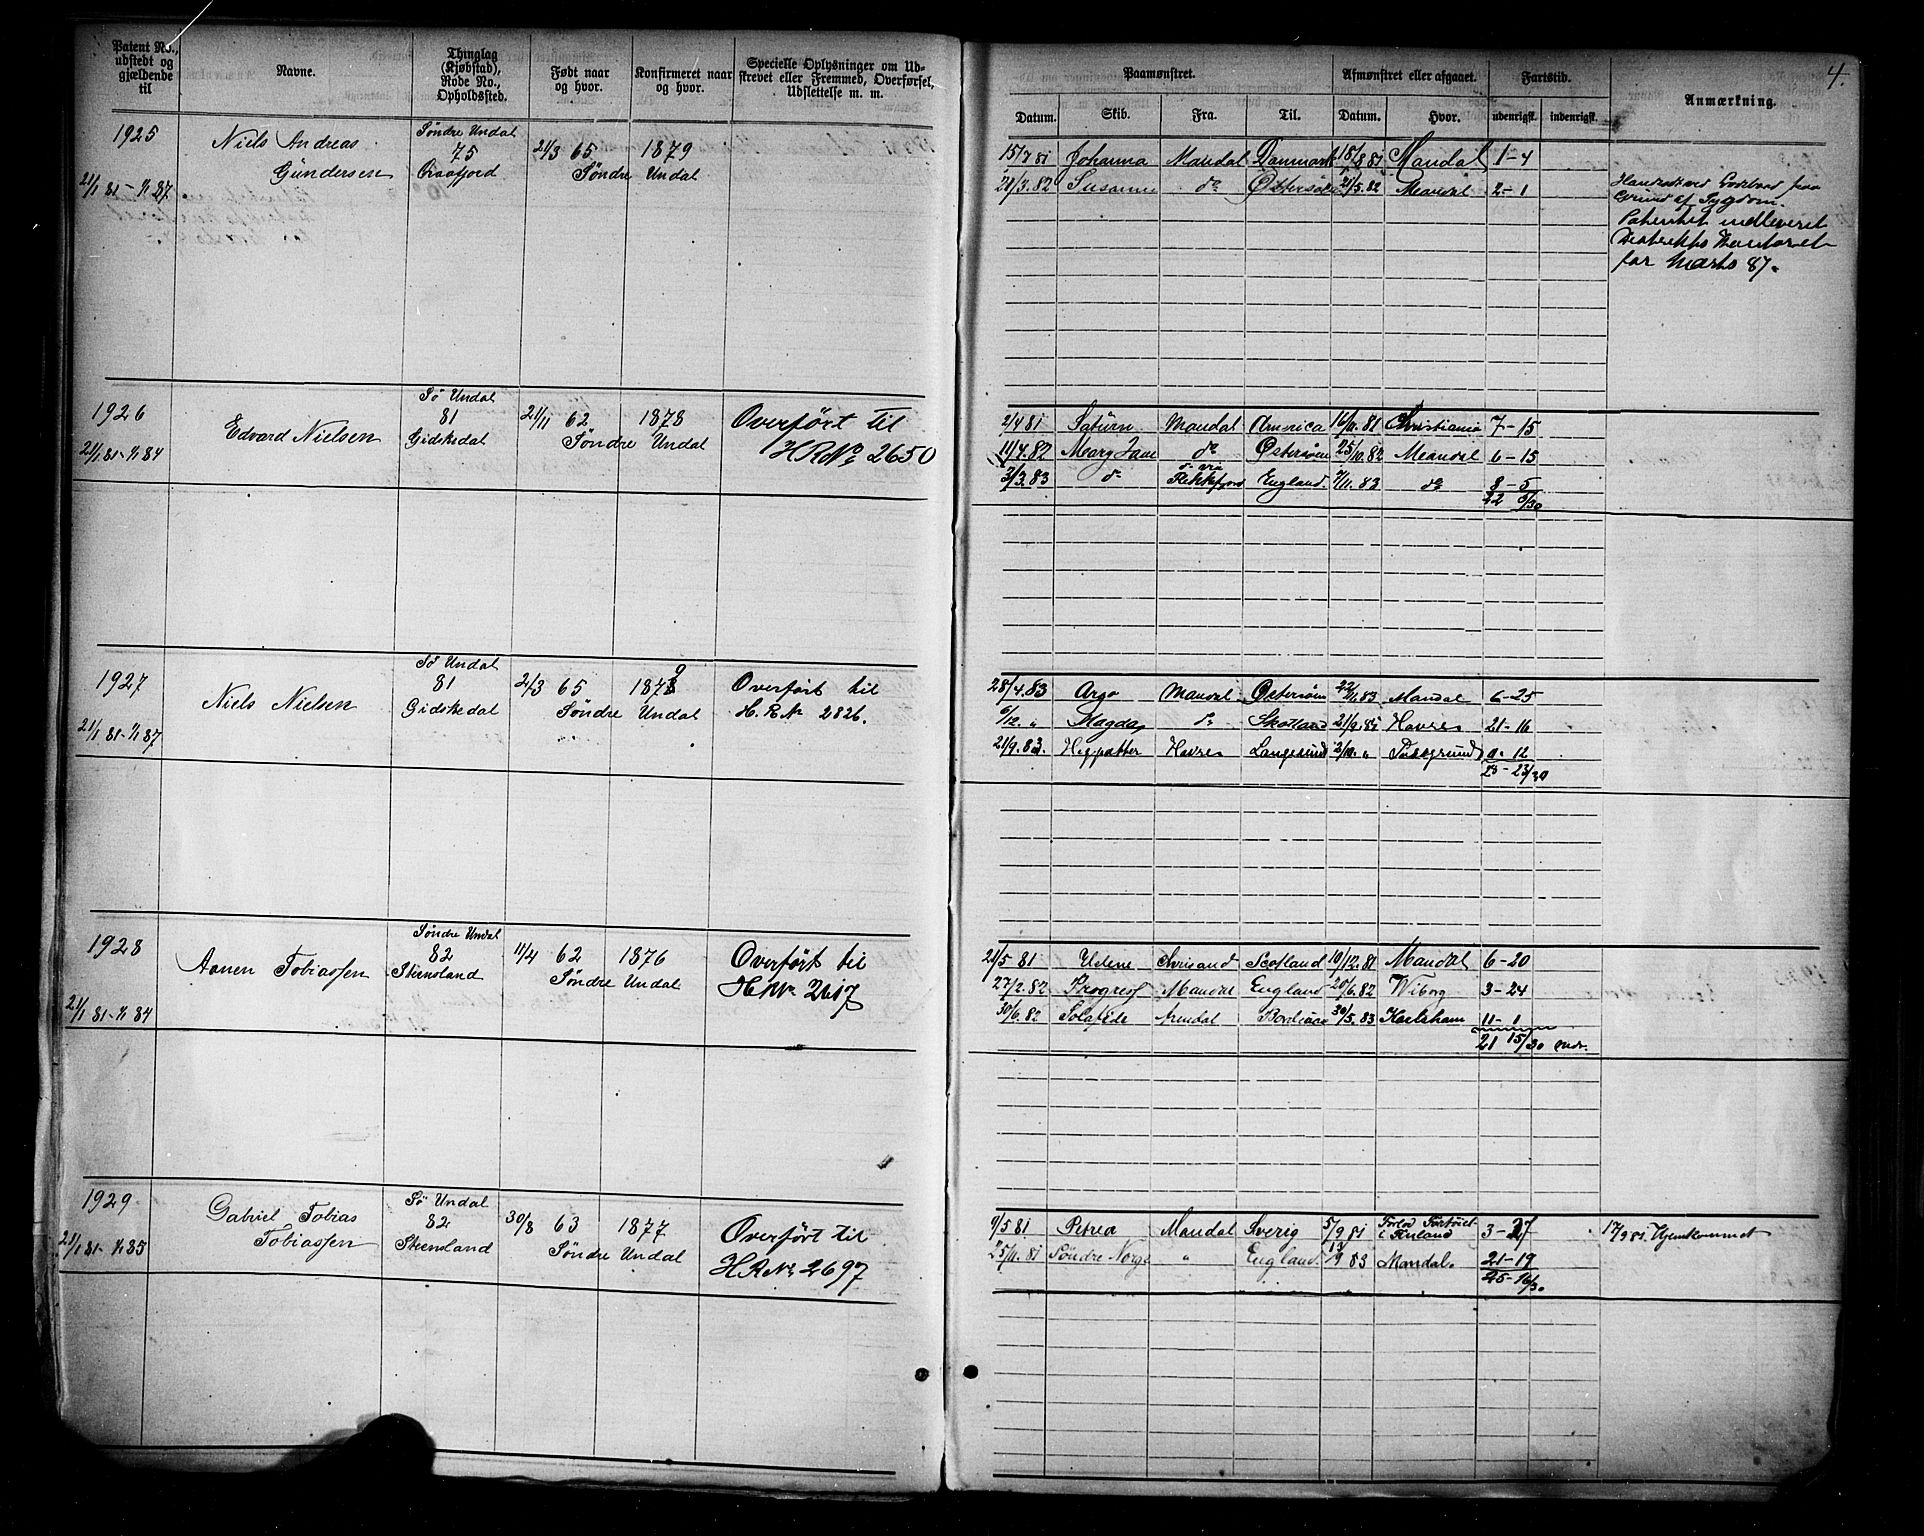 Patent No., udstedt og gjældende til
Navne.
Thinglag (Kjøbstad), Rode No., Opholdssted.
Født naar og hvor.
Konfirmeret naar og hvor.
Specielle Oplysninger om Udstrevet eller Fremmed, Overførsel, Udslettelse m. m.
Paamønstret.
Afmønstret eller afgaaet.
Fartstid.
Anmærkning.
4.
Datum.
Skib.
Fra.
Til.
Datum.
Hvor.
udenrigsk.
indenrigsk.
1925
Niels Andreas Gundersen
Søndre Undal
75
21/3 65 Søndre Undal
1879
21/1 81 - 1/1 87
15/7 81 Johanna Mandal Danmark 18/8 81 Mandal 1-4
21/3.82 Susanne do Østersøen 21/5.82 Mandal 2-1
Grund af Sygdom.
Patentet indleveret
for Marts 87.
1926
Edvard Nielsen
Sø Undal
81
Gidskedal
21/11 62 Søndre Undal
1878
Overført til
HRNo 2650
21/1 81 - 1/1 84
2/4 81 Saturn Mandal America 16/11.81 Christiania 7-15
11/4.82 Mary Jane do Østersøen 25/10.82 Mandal 6-15
3/3.83 do do via Flekkefjord England. 7/11.83 do 8-5
22 5/30
1927
Niels Nielsen
Sø Undal
81
Gidskedal
2/3 65 Søndre Undal
1879
Overført til
H.RNr 2826.
21/1 81 - 1/1 87
28/4.83 Argo Mandal Østersøen 22/11.83 Mandal 6-25
6/12 " Magda do Skotland 21/9.85 Havre 21-16
21/9.83. Havre Langesund 3/10. " 0-12
28-23/30
1928
Aanen Tobiassen
Søndre Undal
82
Steensland
11/4 62 Søndre Undal
1876
Overført til
HRNr 2617
21/1 81 - 1/1 84
21/5 81 Helene Scotland 10/12.81 Mandal 6-20
27/2.82 Progress Mandal England 20/6.82 Wiborg 3-24
30/6.82 Solafide Arendal 30/5.83 Karlsham 11-1
21 15/30
1929
Gabriel Tobias Tobiassen
Sø Undal
82
Steensland
30/8 63 Søndre Undal
1877
Overført til
HRNr. 2697
21/1 81 - 1/1 85
9/5 81 Petrea Mandal Sverig 5/9 81 i Finland 3-27
17/9 81. Hjemkommet
25/11.81 Søndre Norge " England. 13/9 83 Mandal. 21-19
25-16/30